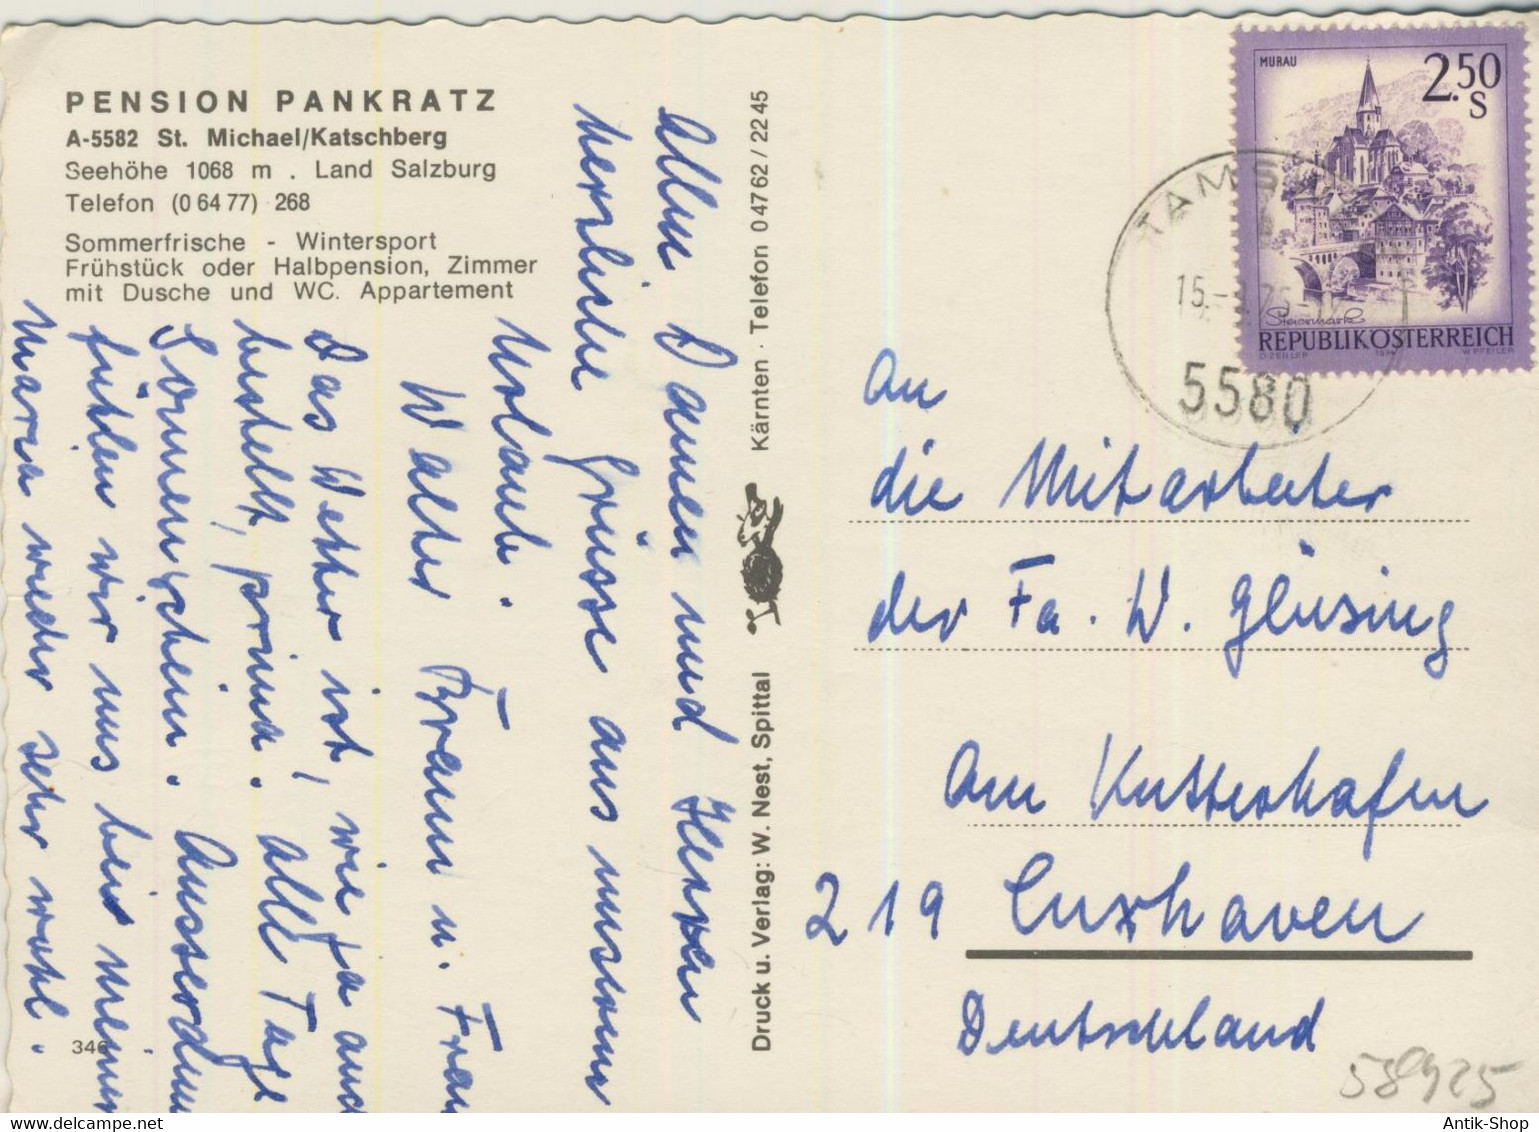 PENSION PANKRATZ
A-5582 St. Michael/Katschberg
Seehöhe 1068 m . Land Salzburg
Telefon (0 64 77) 268
Sommerfrische - Wintersport
Frühstück oder Halbpension, Zimmer
mit Dusche und WC. Appartement
Allen Damen und Herren
herzliche Grüsse aus unserem
Urlaub.
Walter Braun u. Frau
Das Wetter ist, wie ja auch
bestellt, prima. Alle Tage
Sonnenschein. Ausserdem
fühlen wir uns bei meiner
Maria wieder sehr wohl.
346
Druck u. Verlag: W. Nest, Spittal
Kärnten · Telefon 0 47 62 / 22 45
MURAU
2.50
S
Steiermark
REPUBLIK ÖSTERREICH
O. ZEILLER 1974 W. PFEILER
TAMS
15.
5580
An
die Mitarbeiter
der Fa. W. Glüsing
Am Kutterhafen
219 Cuxhaven
Deutschland
58925
www.delcampe.net
Antik-Shop